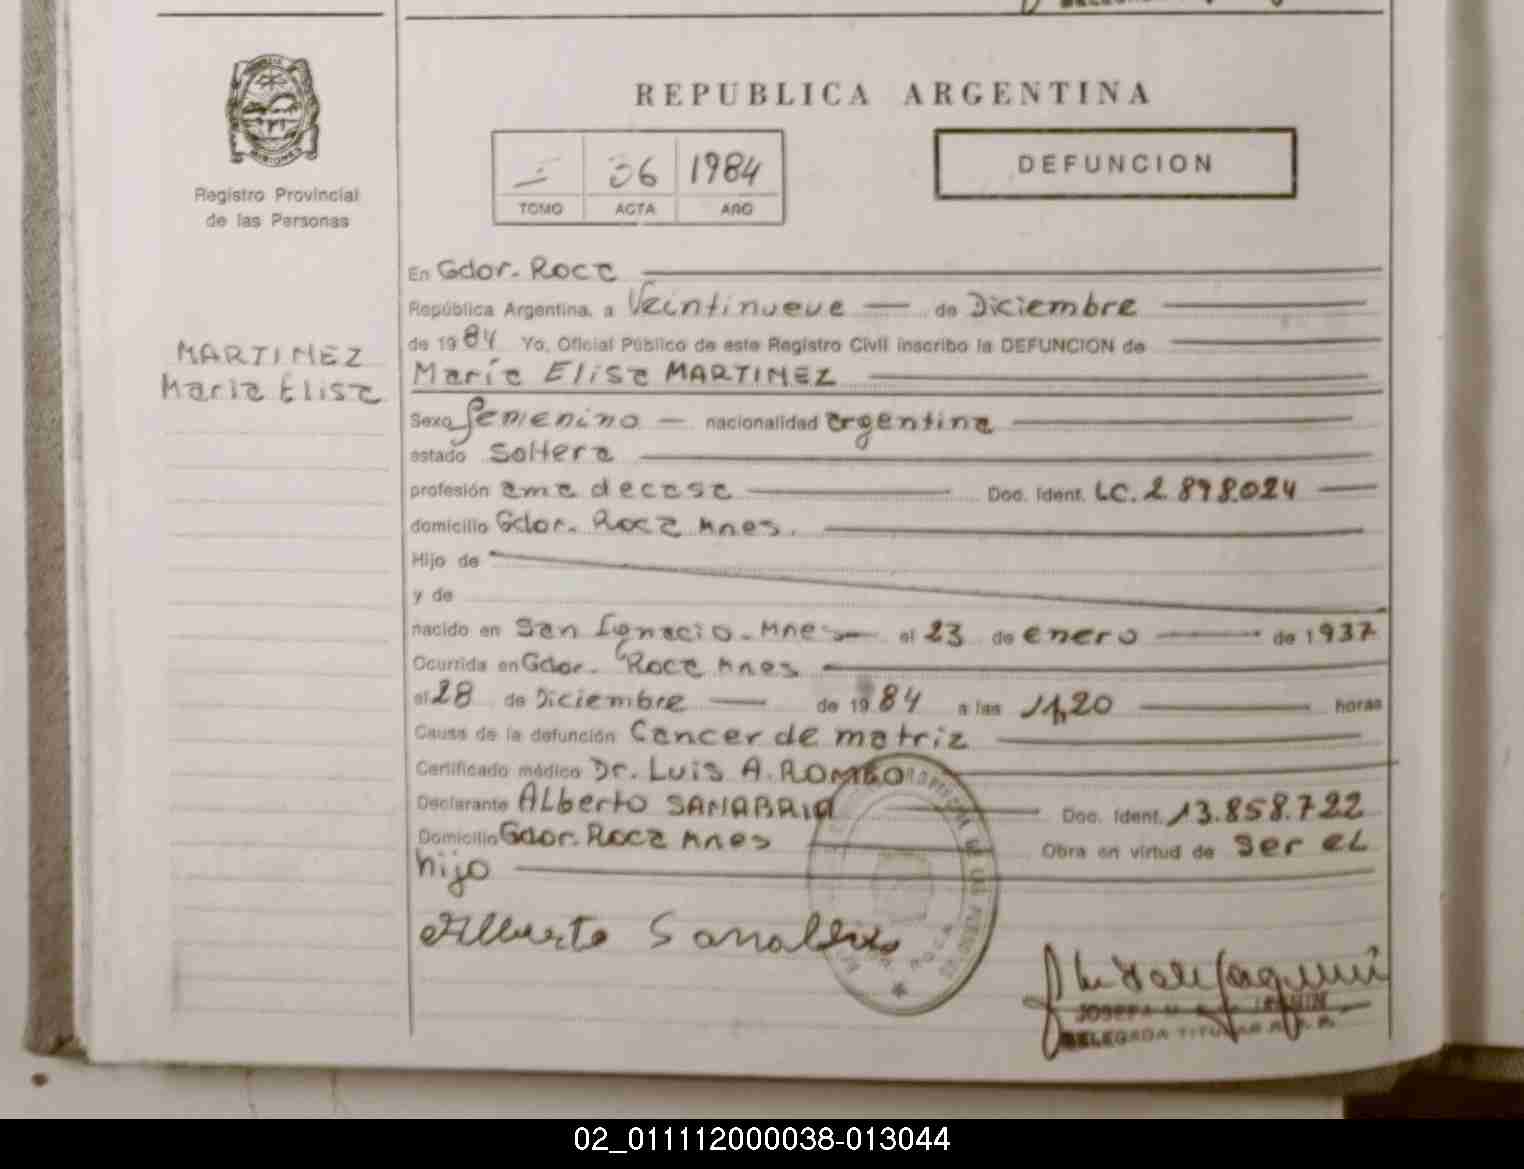 REPUBLICA ARGENTINA
MISIONES
Registro Provincial
de las Personas
I 36 1984
TOMO ACTA AÑO
DEFUNCION
MARTINEZ
María Elisa
En Gdor. Roca
República Argentina, a Veintinueve de Diciembre
de 1984 Yo, Oficial Público de este Registro Civil inscribo la DEFUNCION de
María Elisa MARTINEZ
Sexo femenino nacionalidad argentina
estado Soltera
profesión ama de casa Doc. Ident. LC. 2.898.024
domicilio Gdor. Roca Mnes.
Hijo de
y de
nacido en San Ignacio. Mnes el 23 de enero de 1937
Ocurrida en Gdor. Roca Mnes
el 28 de Diciembre de 1984 a las 11,20 horas
Causa de la defunción Cancer de matriz
Certificado médico Dr. Luis A. ROMEO
Declarante Alberto SANABRIA Doc. Ident. 13.858.722
Domicilio Gdor. Roca Mnes Obra en virtud de ser el
hijo
Alberto Sanabria
ROCA
JOSEFA
DELEGADA TITULAR R.P.P.
02_011112000038-013044